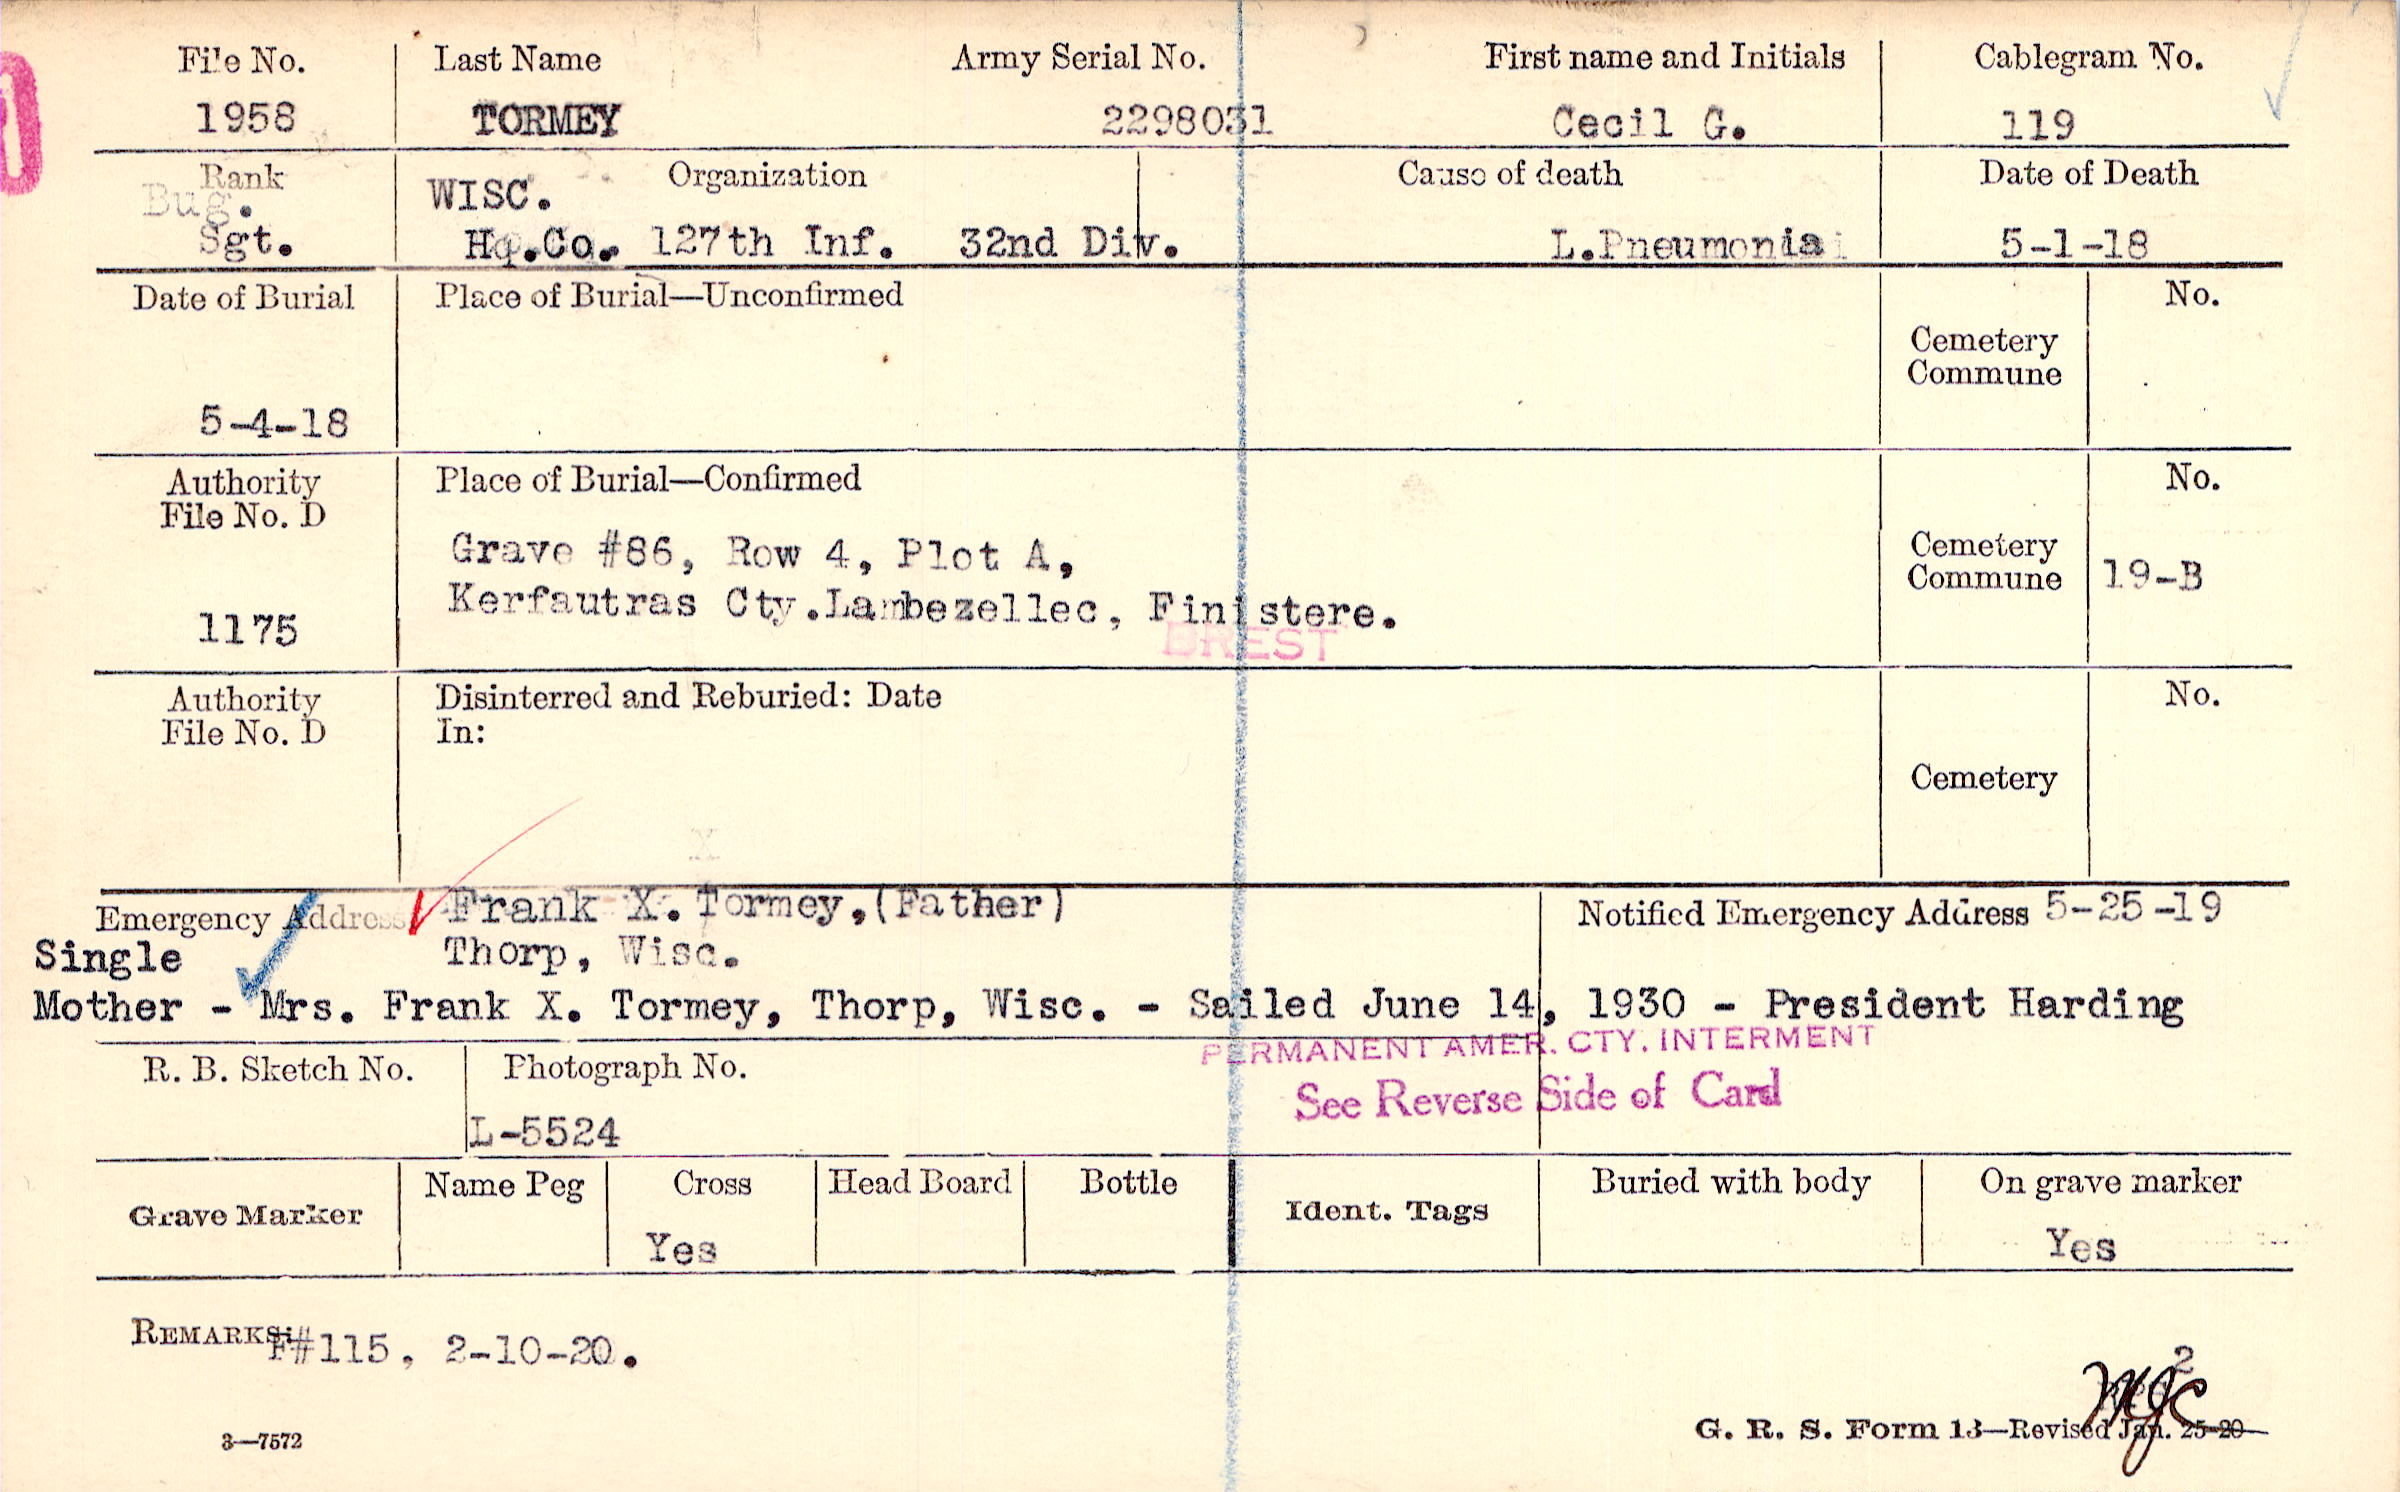 File No. Last Name Army Serial No. First name and Initials Cablegram No.
1958 TORMEY 2298031 Cecil G. 119
Rank Organization Cause of death Date of Death
Bug. WISC.
Sgt. Hq.Co. 127th Inf. 32nd Div. L.Pneumonia 5-1-18
Date of Burial Place of Burial—Unconfirmed No.
Cemetery
Commune
5-4-18
Authority Place of Burial—Confirmed No.
File No. D
Grave #86, Row 4, Plot A, Cemetery
Kerfautras Cty.Lambezellec, Finistere. Commune 19-B
1175
BREST
Authority Disinterred and Reburied: Date No.
File No. D In:
Cemetery
X
Emergency Address Frank X. Tormey,(Father) Notified Emergency Address 5-25-19
Single Thorp, Wisc.
Mother - Mrs. Frank X. Tormey, Thorp, Wisc. - Sailed June 14, 1930 - President Harding
PERMANENT AMER. CTY. INTERMENT
R. B. Sketch No. Photograph No.
See Reverse Side of Card
L-5524
Grave Marker Name Peg Cross Head Board Bottle Ident. Tags Buried with body On grave marker
Yes Yes
REMARKS: F#115, 2-10-20.
2
3—7572 G. R. S. Form 13—Revised Jan. 25-20